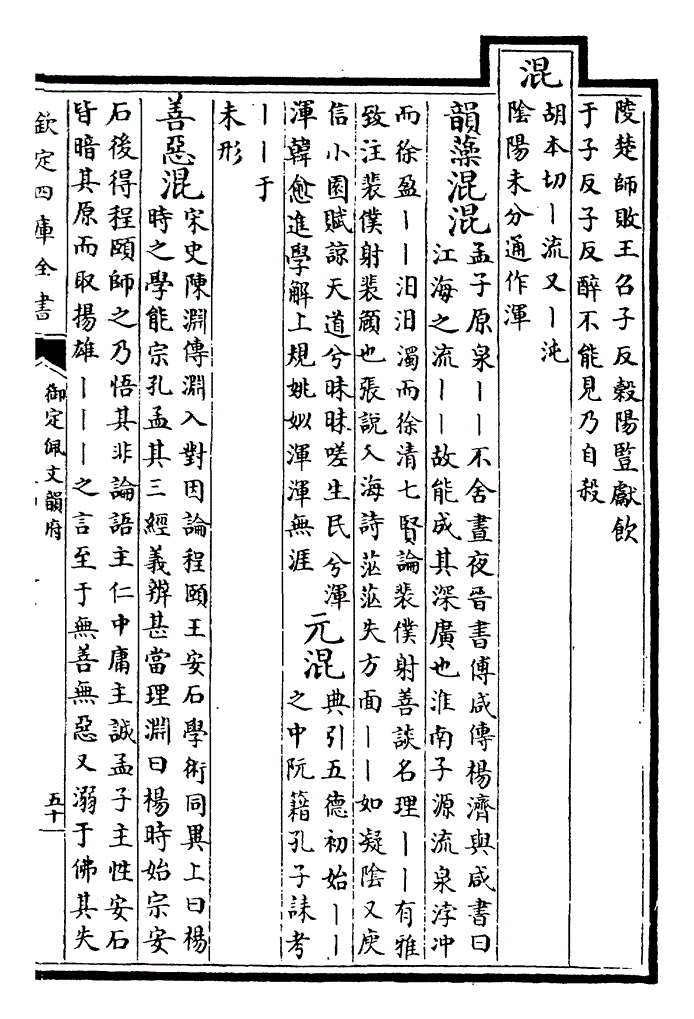 陵楚師敗王召子反榖陽豎獻飲
于子反子反醉不能見乃自殺
混
胡本切丨流又丨沌
陰陽未分通作渾
韻藻混混
孟子原泉丨丨不舍晝夜晉書傅咸傳楊濟與咸書曰
江海之流丨丨故能成其深廣也淮南子源流泉浡冲
而徐盈丨丨汩汩濁而徐清七賢論裴僕射善談名理丨丨有雅
致注裴僕射裴頠也張說入海詩茫茫失方面丨丨如凝陰又庾
信小園賦諒天道兮昧昧嗟生民兮渾
渾韓愈進學解上規姚姒渾渾無涯
元混
典引五德初始丨丨
之中阮籍孔子誄考
丨丨于
未形
善惡混
宋史陳淵傳淵入對因論程頤王安石學術同異上曰楊
時之學能宗孔孟其三經義辨甚當理淵曰楊時始宗安
石後得程頤師之乃悟其非論語主仁中庸主誠孟子主性安石
皆暗其原而取揚雄丨丨丨之言至于無善無惡又溺于佛其失
欽定四庫全書
御定佩文韻府
五十一